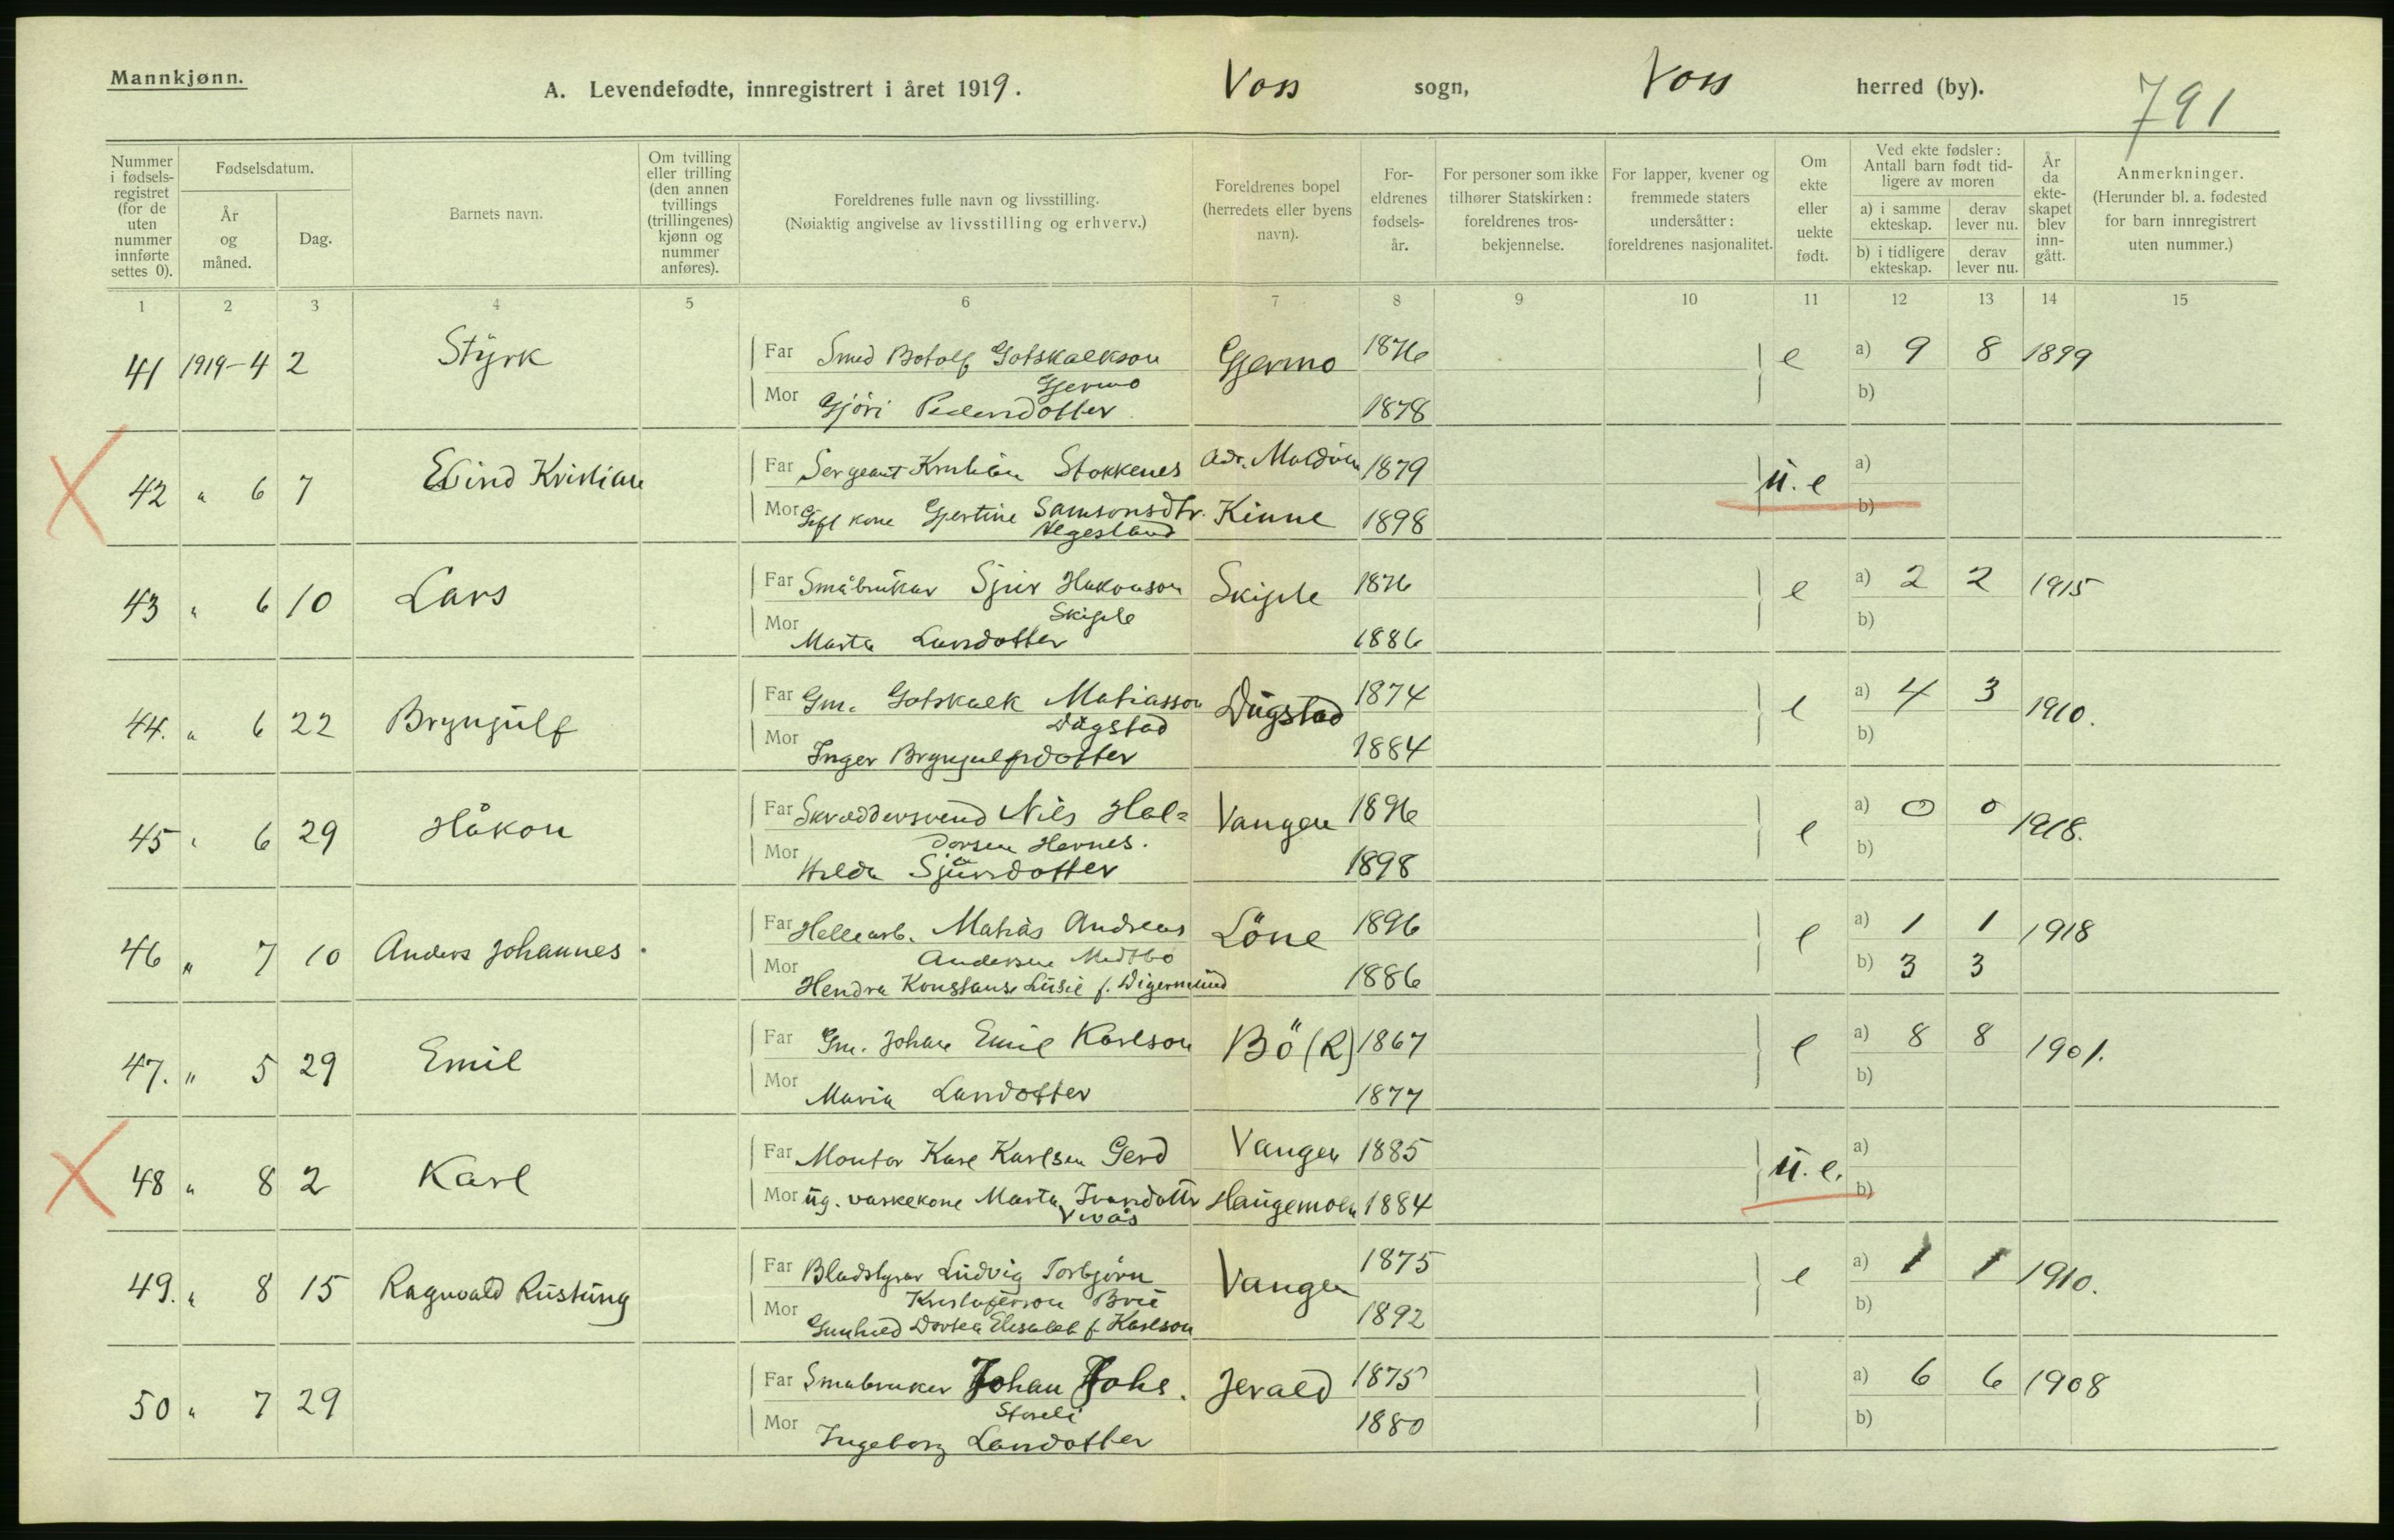 Mannkjønn.
A. Levendefødte, innregistrert i året 1919. Voss sogn, Voss herred (by). 791
Nummer i fødselsregistret (for de uten nummer innførte settes 0).
Fødselsdatum.
År og måned.
Dag.
Barnets navn.
Om tvilling eller trilling (den annen tvillings (trillingenes) kjønn og nummer anføres).
Foreldrenes fulle navn og livsstilling.
(Nøiaktig angivelse av livsstilling og erhverv.)
Foreldrenes bopel (herredets eller byens navn).
For-eldrenes fødsels-år.
For personer som ikke tilhører Statskirken: foreldrenes tros-bekjennelse.
For lapper, kvener og fremmede staters undersåtter: foreldrenes nasjonalitet.
Om ekte eller uekte født.
Ved ekte fødsler: Antall barn født tid-ligere av moren
a) i samme ekteskap. derav lever nu.
b) i tidligere ekteskap. derav lever nu.
År da ekte-skapet blev inn-gått.
Anmerkninger.
(Herunder bl. a. fødested for barn innregistrert uten nummer.)
1 2 3 4 5 6 7 8 9 10 11 12 13 14 15
41 1919-4 2 Styrk Far Smed Botolf Gotskalkson Gjermo 1876 e a) 9 8 1899
Gjermo
Mor Gjöri Pedersdotter 1878 b)
42 " 6 7 Eivind Kristian Far Sergeant Kristian Stokkenes Adr. Maldöen 1879 u. e a)
Mor Gift kone Gjertine Samsonsdtr. Kinne 1898 b)
Helgesland
43 " 6 10 Lars Far Småbruker Sjur Hakonson Skiple 1876 e a) 2 2 1915
Skiple
Mor Marta Larsdotter 1886 b)
44. " 6 22 Brynjulf Far Gm. Gotskalk Matiasson Dugstad 1874 e a) 4 3 1910.
Dugstad
Mor Inger Brynjulfsdotter 1884 b)
45 " 6 29 Håkon Far Skreddersvend Nils Hal= Vangen 1896 e a) 0 0 1918.
dorsen Hernes.
Mor Hilda Sjursdotter 1898 b)
46 " 7 10 Anders Johannes Far Hellearb. Matias Andreas Löne 1896 e a) 1 1 1918
Andersen Medtbö
Mor Hendra Konstanse Lusie f. Digernsund 1886 b) 3 3
47. " 5 29 Emil Far Gm. Johan Emil Karlson Bö (R) 1867 e a) 8 8 1901.
Mor Maria Larsdotter 1877 b)
48 " 8 2 Karl Far Montör Karl Karlsen Gerd Vangen 1885 u. e. a)
Mor ug. vaskekone Marta Ivarsdottr Haugemoen 1884 b)
Vivås
49. " 8 15 Ragnvald Rustung Far Bladstyrar Ludvig Torbjörn Vangen 1875 e a) 1 1 1910.
Kristoferson
Mor Gunhild Dortea Elisabet f. Karlson 1892 b)
50 " 7 29 Far Småbruker Johan Johs. Jerald 1875 a) 6 6 1908
Storeli
Mor Ingeborg Larsdotter 1880 b)